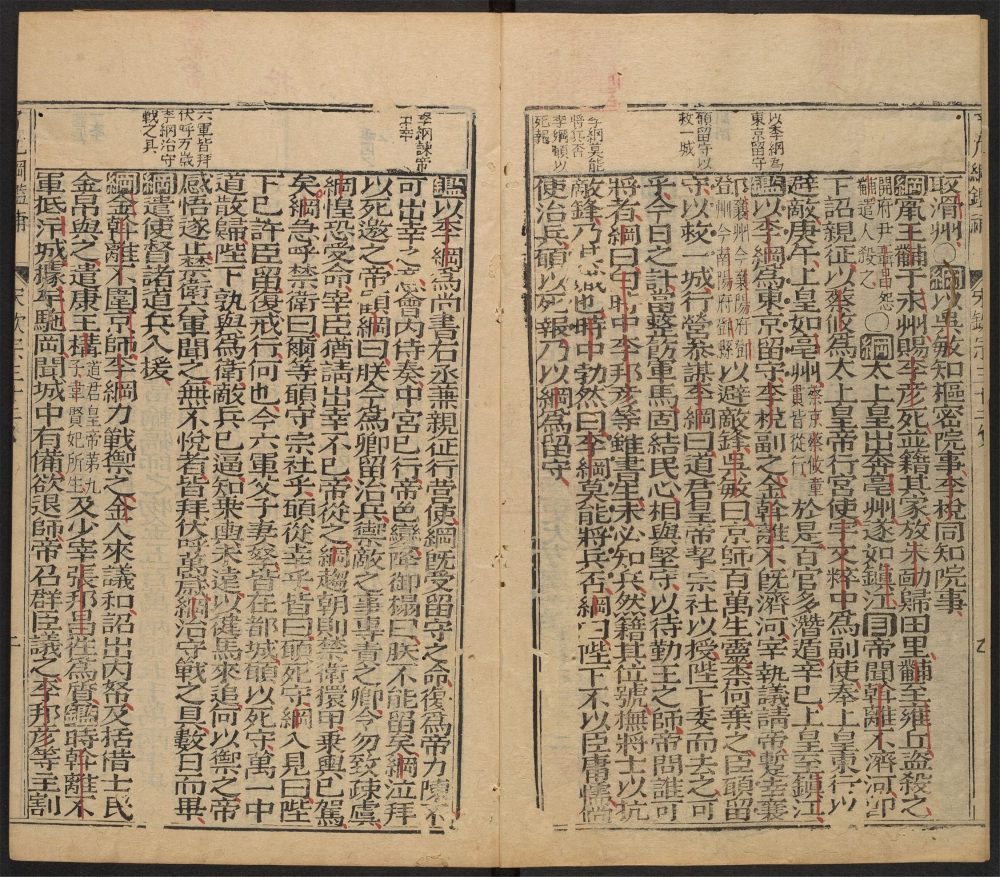 以李綱為
東京留守
願留守以
救一城
李綱莫能
將兵否
李綱願以
死報
取滑州○綱以吳敏知樞密院事李梲同知院事
綱竄王黼于永州賜李彥死並籍其家放朱勔歸田里黼至雍丘盜殺之
開府尹聶昌怨黼遣人殺之○綱太上皇出奔亳州遂如鎮江目帝聞斡離不濟河即
下詔親征以蔡攸為太上皇帝行宮使宇文粹中為副使奉上皇東行以
避敵庚午上皇如亳州蔡京蔡攸童貫皆從行於是百官多潛遁辛巳上皇至鎮江
鑑以李綱為東京留守李梲副之金斡離不既濟河宰執議請帝暫幸襄
鄧襄州今襄陽府鄧登州今南陽府鄧縣以避敵鋒吳敏曰京師百萬生靈柰何棄之臣願留
守以救一城行營參謀李綱曰道君皇帝挈宗社以授陛下委而去之可
乎今日之計當整飭軍馬固結民心相與堅守以待勤王之師帝問誰可
將者綱曰白時中李邦彥等雖書生未必知兵然籍其位號撫將士以抗
敵鋒乃其職也時中勃然曰李綱莫能將兵否綱曰陛下不以臣庸懦儻
使治兵願以死報乃以綱為留守
李綱諫帝
出幸
六軍皆拜
伏呼万歲
李綱治守
戰之具
鑑以李綱為尚書右丞兼親征行營使綱既受留守之命復為帝力陳不
可出幸之意會內侍奏中宮已行帝色變降御榻曰朕不能留矣綱泣拜
以死邀之帝顧綱曰朕今為卿留治兵禦敵之事專責之卿今勿致疎虞
綱惶恐受命宰臣猶請出幸不已帝從之綱趨朝則禁衛擐甲乘輿已駕
矣綱急呼禁衛曰爾等願守宗社乎願從幸乎皆曰願死守綱入見曰陛
下已許臣留復戒行何也今六軍父子妻孥皆在都城願以死守萬一中
道散歸陛下孰與為衛敵兵已逼知乘輿未遠以健馬來追何以禦之帝
感悟遂止禁衛六軍聞之無不悅者皆拜伏呼萬歲綱治守戰之具數日而畢
綱遣使督諸道兵入援
綱金斡離不圍京師李綱力戰禦之金人來議和詔出內帑及括借士民
金帛與之遣康王構道君皇帝第九子韋賢妃所生及少宰張邦昌往為質鑑時斡離不
軍抵汴城據牟駝岡聞城中有備欲退師帝召群臣議之李邦彥等主割